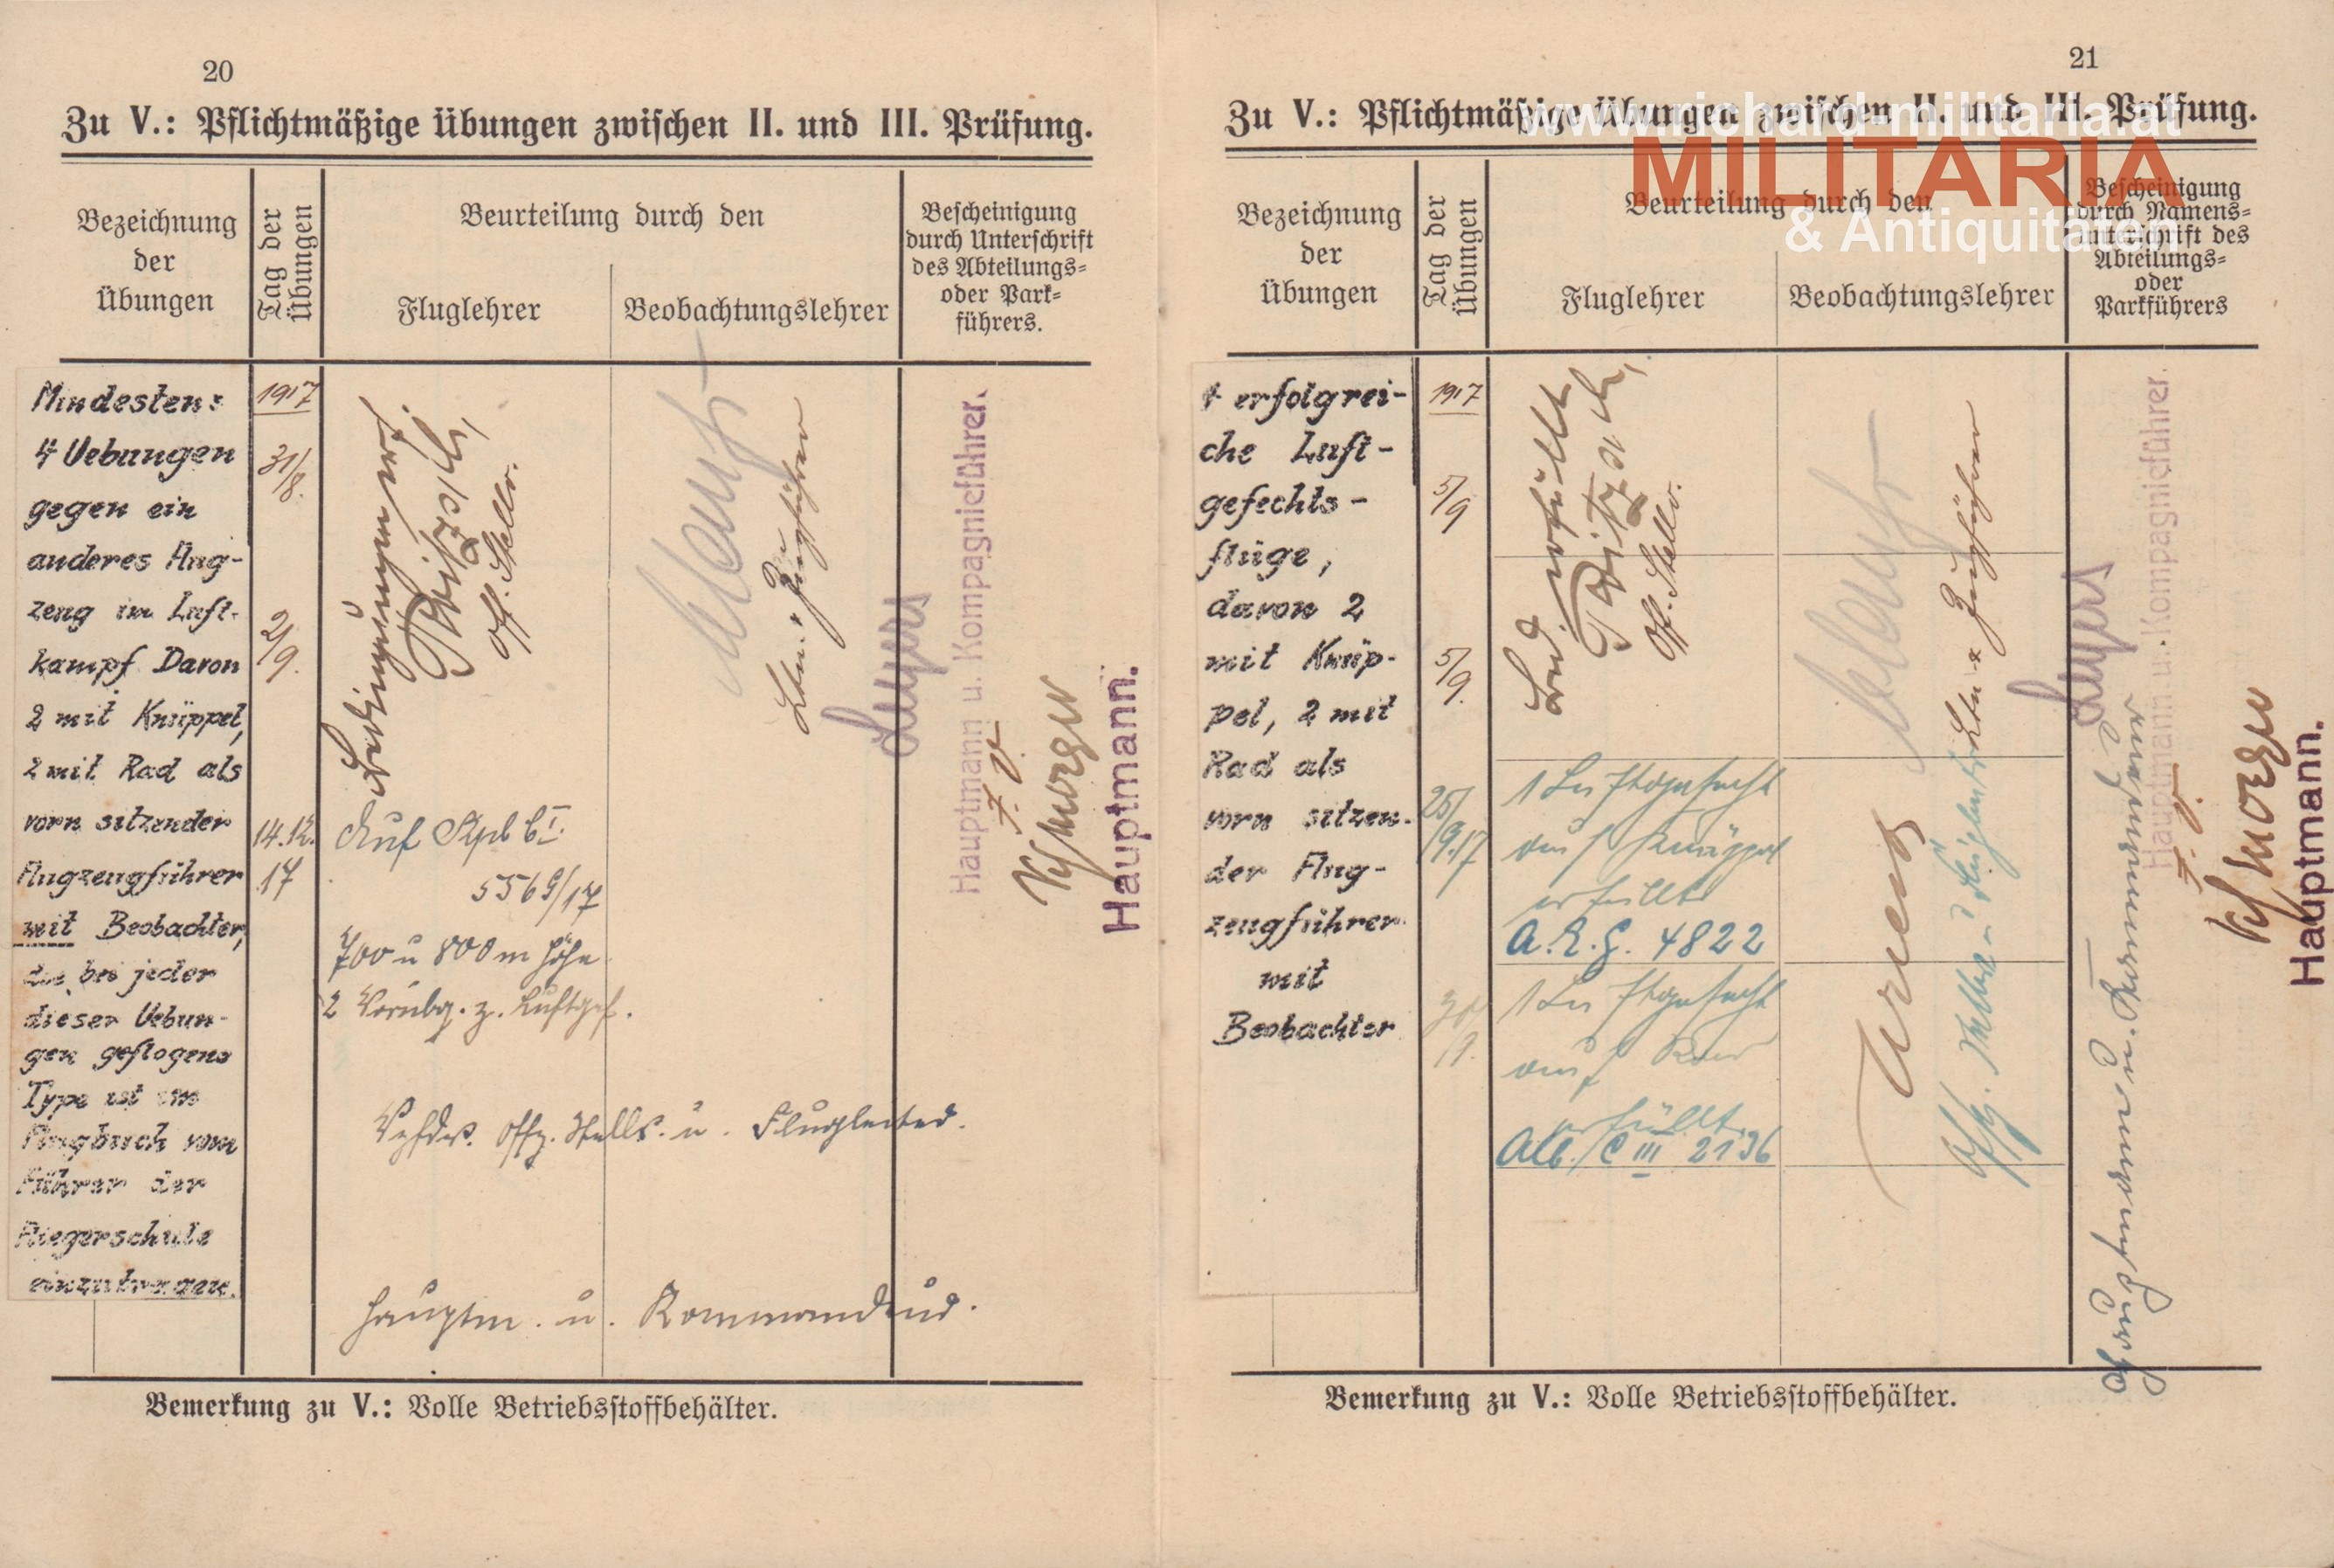 20
Zu V.: Pflichtmäßige Übungen zwischen II. und III. Prüfung.
Bezeichnung
der
Übungen
Tag der
Übungen
Beurteilung durch den
Fluglehrer
Beobachtungslehrer
Bescheinigung
durch Unterschrift
des Abteilungs-
oder Park-
führers.
Mindestens
4 Uebungen
gegen ein
anderes Flug-
zeug im Luft-
kampf Davon
2 mit Knüppel,
2 mit Rad als
vorn sitzender
Flugzeugführer
mit Beobachter,
die bei jeder
dieser Uebun-
gen geflogene
Type ist im
Flugbuch vom
Führer der
Fliegerschule
einzutragen.
1917
31/8.
2/9.
14.12.
17
Bedingungen erf.
Off. Stellv.
Ltn. u. Zugführer
Hauptmann u. Kompagnieführer.
Hauptmann.
Auf
5569/17
700 u 800 m Höhe
2 Vorübg. z. Luftgef.
Offz. Stellv. u. Flugleiter.
Hauptm. u. Kommandeur.
Bemerkung zu V.: Volle Betriebsstoffbehälter.
21
Zu V.: Pflichtmäßige Übungen zwischen II. und III. Prüfung.
www.richard-militaria.at
MILITARIA
& Antiquitäten
Bezeichnung
der
Übungen
Tag der
Übungen
Beurteilung durch den
Fluglehrer
Beobachtungslehrer
Bescheinigung
durch Namens-
unterschrift des
Abteilungs-
oder
Parkführers
4 erfolgrei-
che Luft-
gefechts-
flüge,
davon 2
mit Knüp-
pel, 2 mit
Rad als
vorn sitzen-
der Flug-
zeugführer
mit
Beobachter
1917
5/9
5/9.
25/9.17
30/9.
Bed. erfüllt
Off. Stellv.
Ltn. u. Zugführer
1 Luftgefecht
auf Knüppel
erfüllt
A.E.G. 4822
1 Luftgefecht
auf Rad
erfüllt
Alb. C III 2136
Hauptmann u. Kompagnieführer.
Hauptmann.
Bemerkung zu V.: Volle Betriebsstoffbehälter.